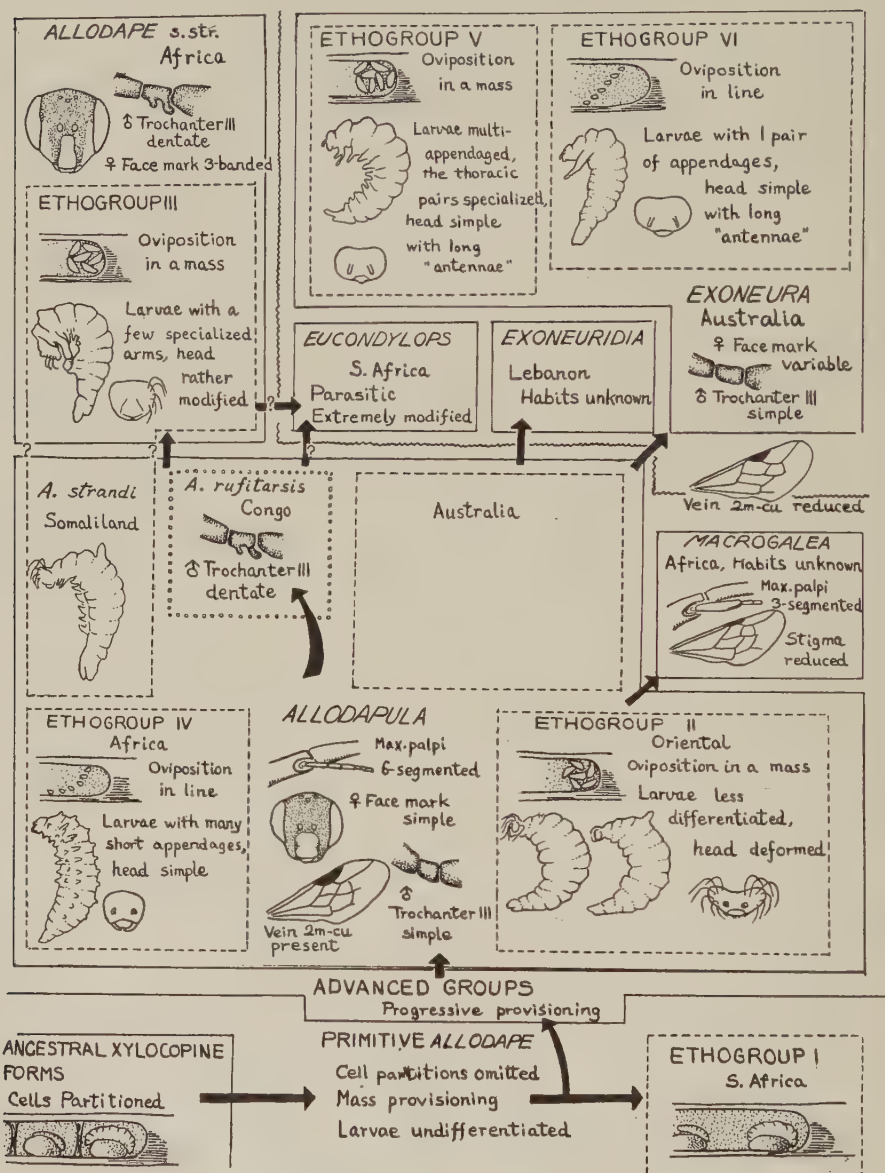 ALLODAPE s.str.
Africa
♂ Trochanter III
dentate
♀ Face mark 3-banded
ETHOGROUP III
Oviposition
in a mass
Larvae with a
few specialized
arms, head
rather
modified
ETHOGROUP V
Oviposition
in a mass
Larvae multi-
appendaged,
the thoracic
pairs specialized,
head simple
with long
"antennae"
ETHOGROUP VI
Oviposition
in line
Larvae with 1 pair
of appendages,
head simple
with long
"antennae"
EXONEURA
Australia
♀ Face mark
variable
♂ Trochanter III
simple
EUCONDYLOPS
S. Africa
Parasitic
Extremely modified
EXONEURIDIA
Lebanon
Habits unknown
?
?
?
?
Vein 2m-cu reduced
A. strandi
Somaliland
A. rufitarsis
Congo
♂ Trochanter III
dentate
Australia
MACROGALEA
Africa, Habits unknown
Max. palpi
3-segmented
Stigma
reduced
ETHOGROUP IV
Africa
Oviposition
in line
Larvae with many
short appendages,
head simple
ALLODAPULA
Max. palpi
6-segmented
♀ Face mark
simple
♂
Trochanter III
simple
Vein 2m-cu
present
ETHOGROUP II
Oriental
Oviposition in a mass
Larvae less
differentiated,
head deformed
ADVANCED GROUPS
Progressive provisioning
ANCESTRAL XYLOCOPINE
FORMS
Cells Partitioned
PRIMITIVE ALLODAPE
Cell partitions omitted
Mass provisioning
Larvae undifferentiated
ETHOGROUP I
S. Africa